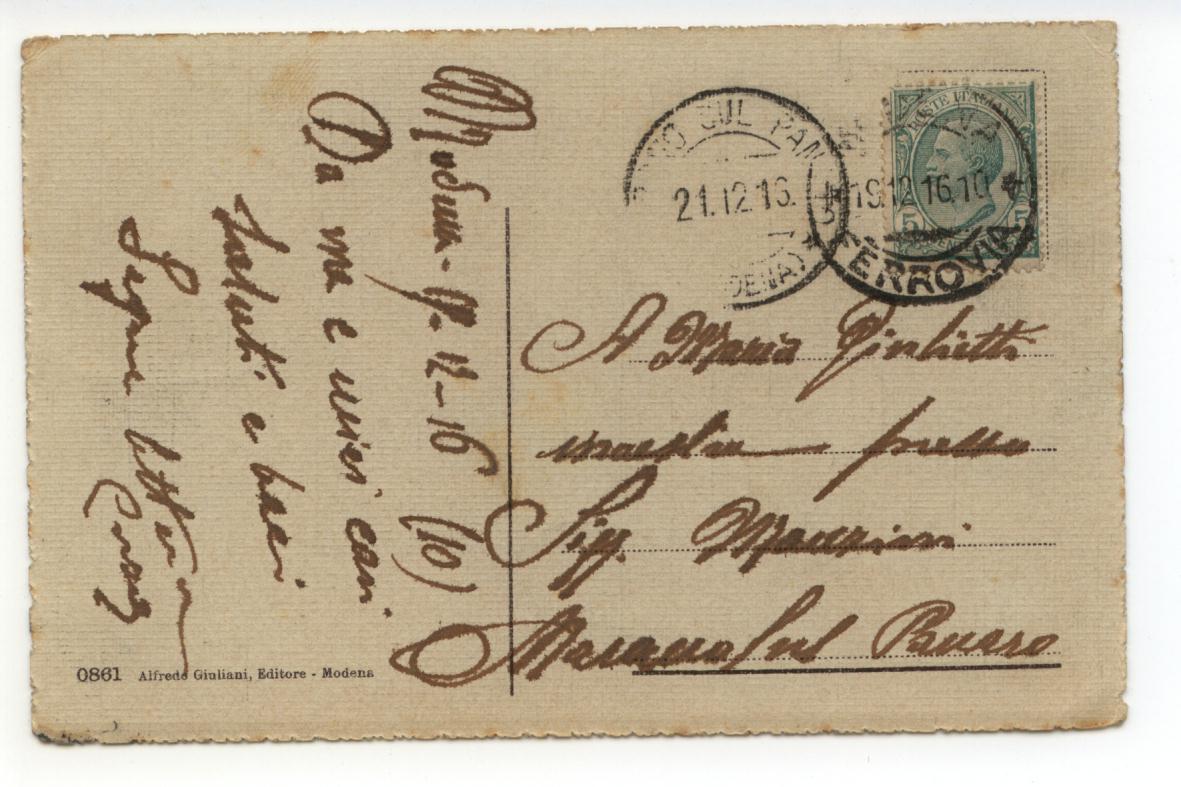 Modena - 19. 12 - 16 (10)
Da me e miei cari
saluti e baci
POSTE ITALIANE
5 5
19.12.16.10
FERROVIA
SUL PAN
21.12.16.
A Maria Giulietti
maestra presso
Sig. Manzini
Marano sul Panaro
0861 Alfredo Giuliani, Editore - Modena